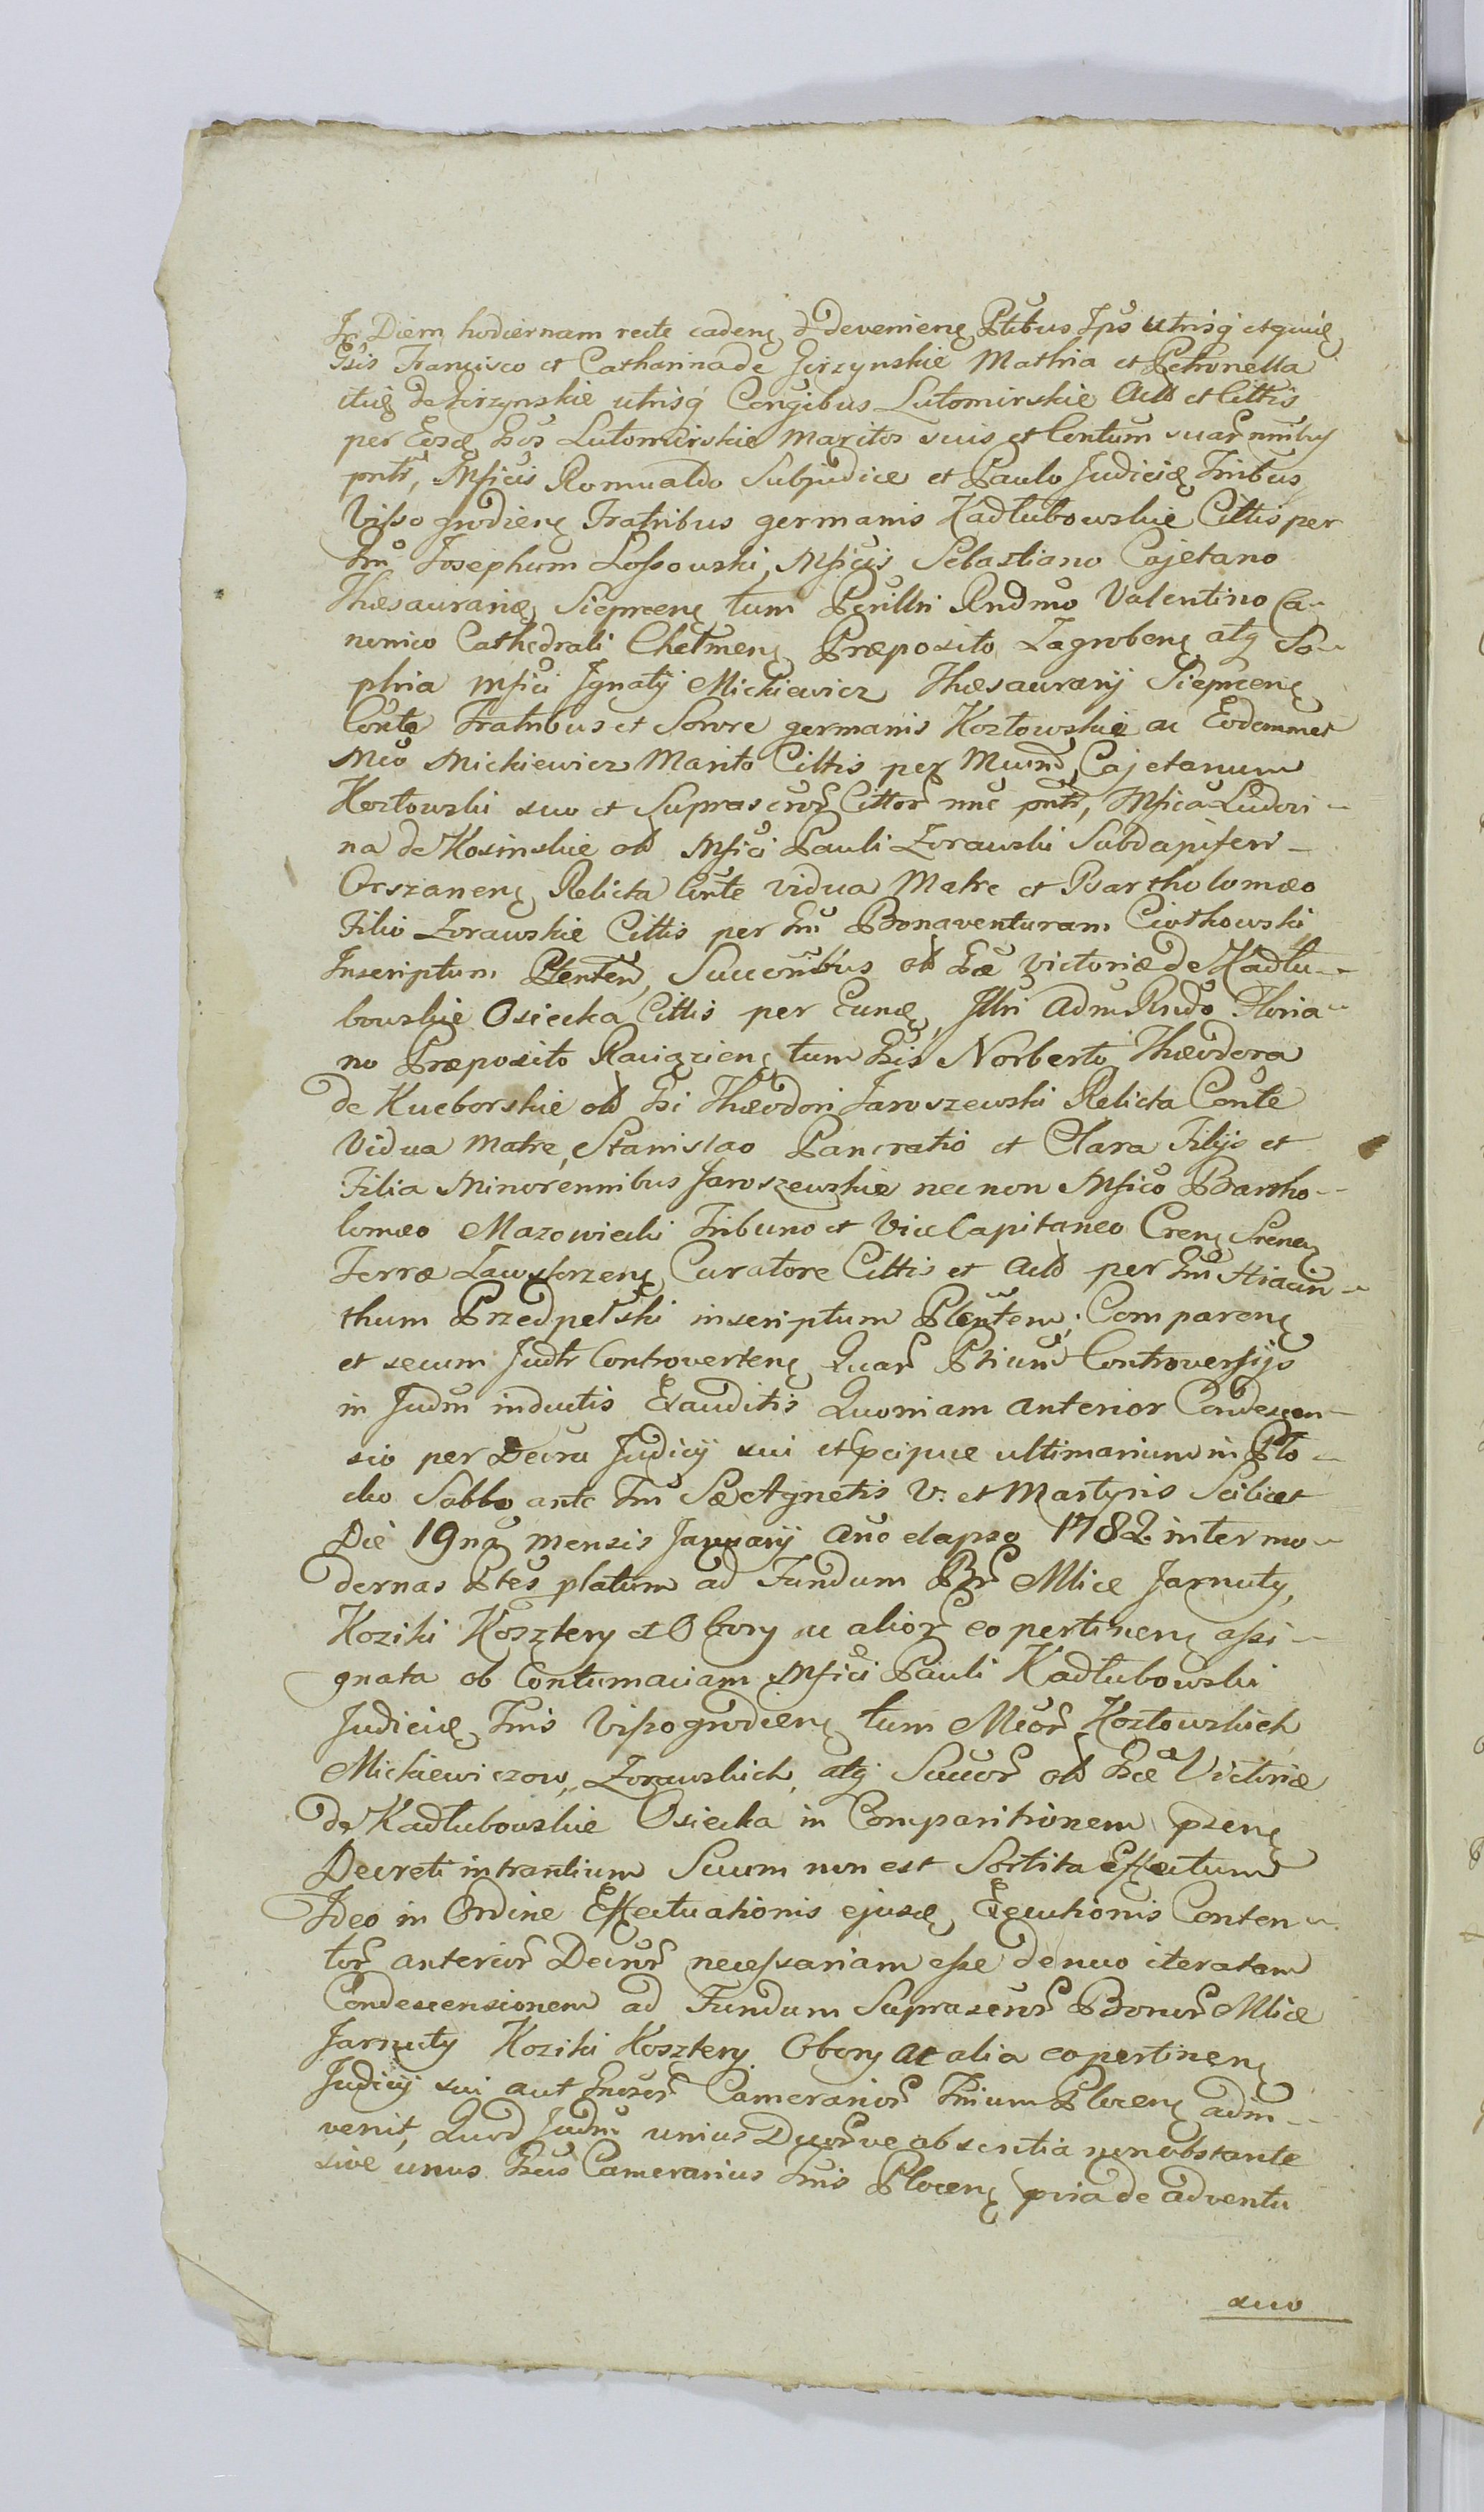 In Diem hodiernam recte caden. & devenien. Ptibus Ips utrisq
Gsis Francisco et Catharina de Jerzynskie Mathia et Petronella
itid. de Jerzynskie utrisq Congibus Lutomirskie Act et Cittis
per Eosd. Gsos Lutomirskie Maritos suis et Contum suar nnibus
pntr, Mficis Romualdo Subjudice et Paulo Judicid. Tribus
Vissogrodien. Fratribus germanis Kadłubowskie Cittis per
Gm Josephum Lossowski, Mficis Sebastiano Cajetano
Thesaurarid. Sieprcen. tum Perillri Rndmo Valentino Ca-
nonico Cathedrali Chełmen. Præposito Zagroben. atq So-
phia Mfici Ignatij Mickiewicz Thesaurarij Sieprcen.
Conte Fratribus et Sorore germanis Kozłowskie ac Eodemmet
Mco Mickiewicz Marito Cittis per Mcumd. Cajetanum
Kozłowski suo et Suprascror Cittor nne pntr, Mfica Ludovi-
na de Kosinskie olt Mfici Pauli Zorawski Subdapiferi
Orszanen. Relicta Conte vidua Matre et Bartholomæo
Filio Zorawskie Cittis per Gm Bonaventuram Ciotkowski
Inscriptum Plenten, Succoribus olt Gsæ Victoriæ de Kadłu-
bowskie Osiecka Cittis per Eund., Illri Adm Rndo Floria-
no Præposito Raciązien. tum Gsis Norberto Theodora
de Kucborskie olt Gsi Theodori Jaroszewski Relicta Conte
Vidua Matre, Stanislao Pancratio et Clara Filijs et
Filia Minorennibus Jaroszewskie nec non Mfico Bartho-
lomæo Mazowiecki Tribuno et ViceCapitaneo Cren. Srenen.
Terræ Zawskrzen. Curatore Cittis et Act per Gm Hiacin-
thum Przedpełski inscriptum Plentem; Comparen.
et secum Judtr Controverten. Quar Ptium Controversijs
in Judm inductis Exauditis Quoniam anterior Condescen-
sio per Decra Judicij sui et pcipue ultimarium in Plo-
cko Sabbo ante Fm Sæ Agnetis V. et Martyris Scilicet
Die 19na Mensis Januarij Ano elapso 1782 inter mo-
dernas Ptes platum ad Fundum Bor Mlice Jarnuty,
Koziki Kosztery et Obory ac alior eo pertinen. assi-
gnata ob Contumaciam Mfici Pauli Kadłubowski
Judicid. Tris Vissogrodien. tum Mcor Kozłowskich
Mickiewiczow, Zorawskich, atq Succor olt Gsæ Victoriæ
de Kadłubowskie Osiecka in Comparitionem psen.
Decreti intrantium Suum non est Sortita Effectum
Ideo in Ordine Effectuationis ejusd. Executionis Conten-
tor anterior Decror necessariam esse denuo iteratam
Condescensionem ad Fundum Suprascror Bonor Mlice
Jarnuty Koziki Kosztery Obory ac alia eo pertinen.
Judicij sui aut Gnosor Camerarior Trium Plocen. adin-
venit, Quod Judm unius Duorve absentia non obstante
sive unus Gsus Camerarius Tris Plocen. pria de adventu
suo